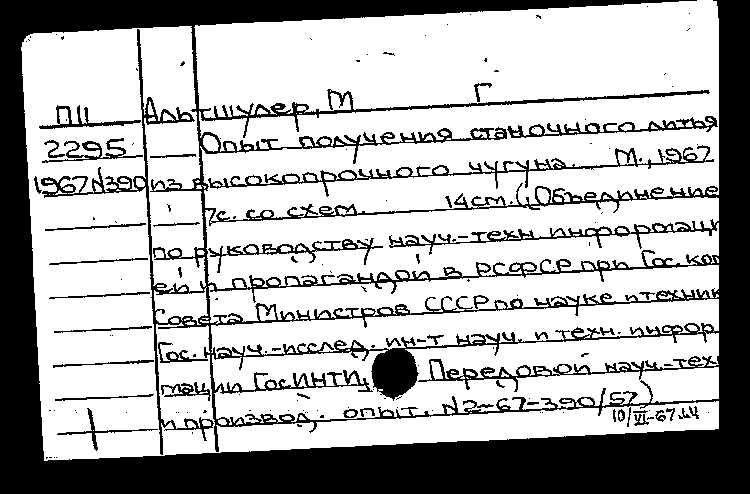 П11 Альтшулер, М Г
2295 Опыт получения станочного литья
1967 N390 из высокопрочного чугуна. М., 1967
7с. со схем. 14см. (Объединение
по руководству науч.-техн информаци
ей и пропагандой в РСФСР при Гос. ком
Совета Министров СССР по науке и техник
Гос. науч.-исслед. ин-т науч. и техн. инфор
мации ГосИНТИ, Передовой науч.-тех
и производ. опыт. N2-67-390/57)
10/VI-67